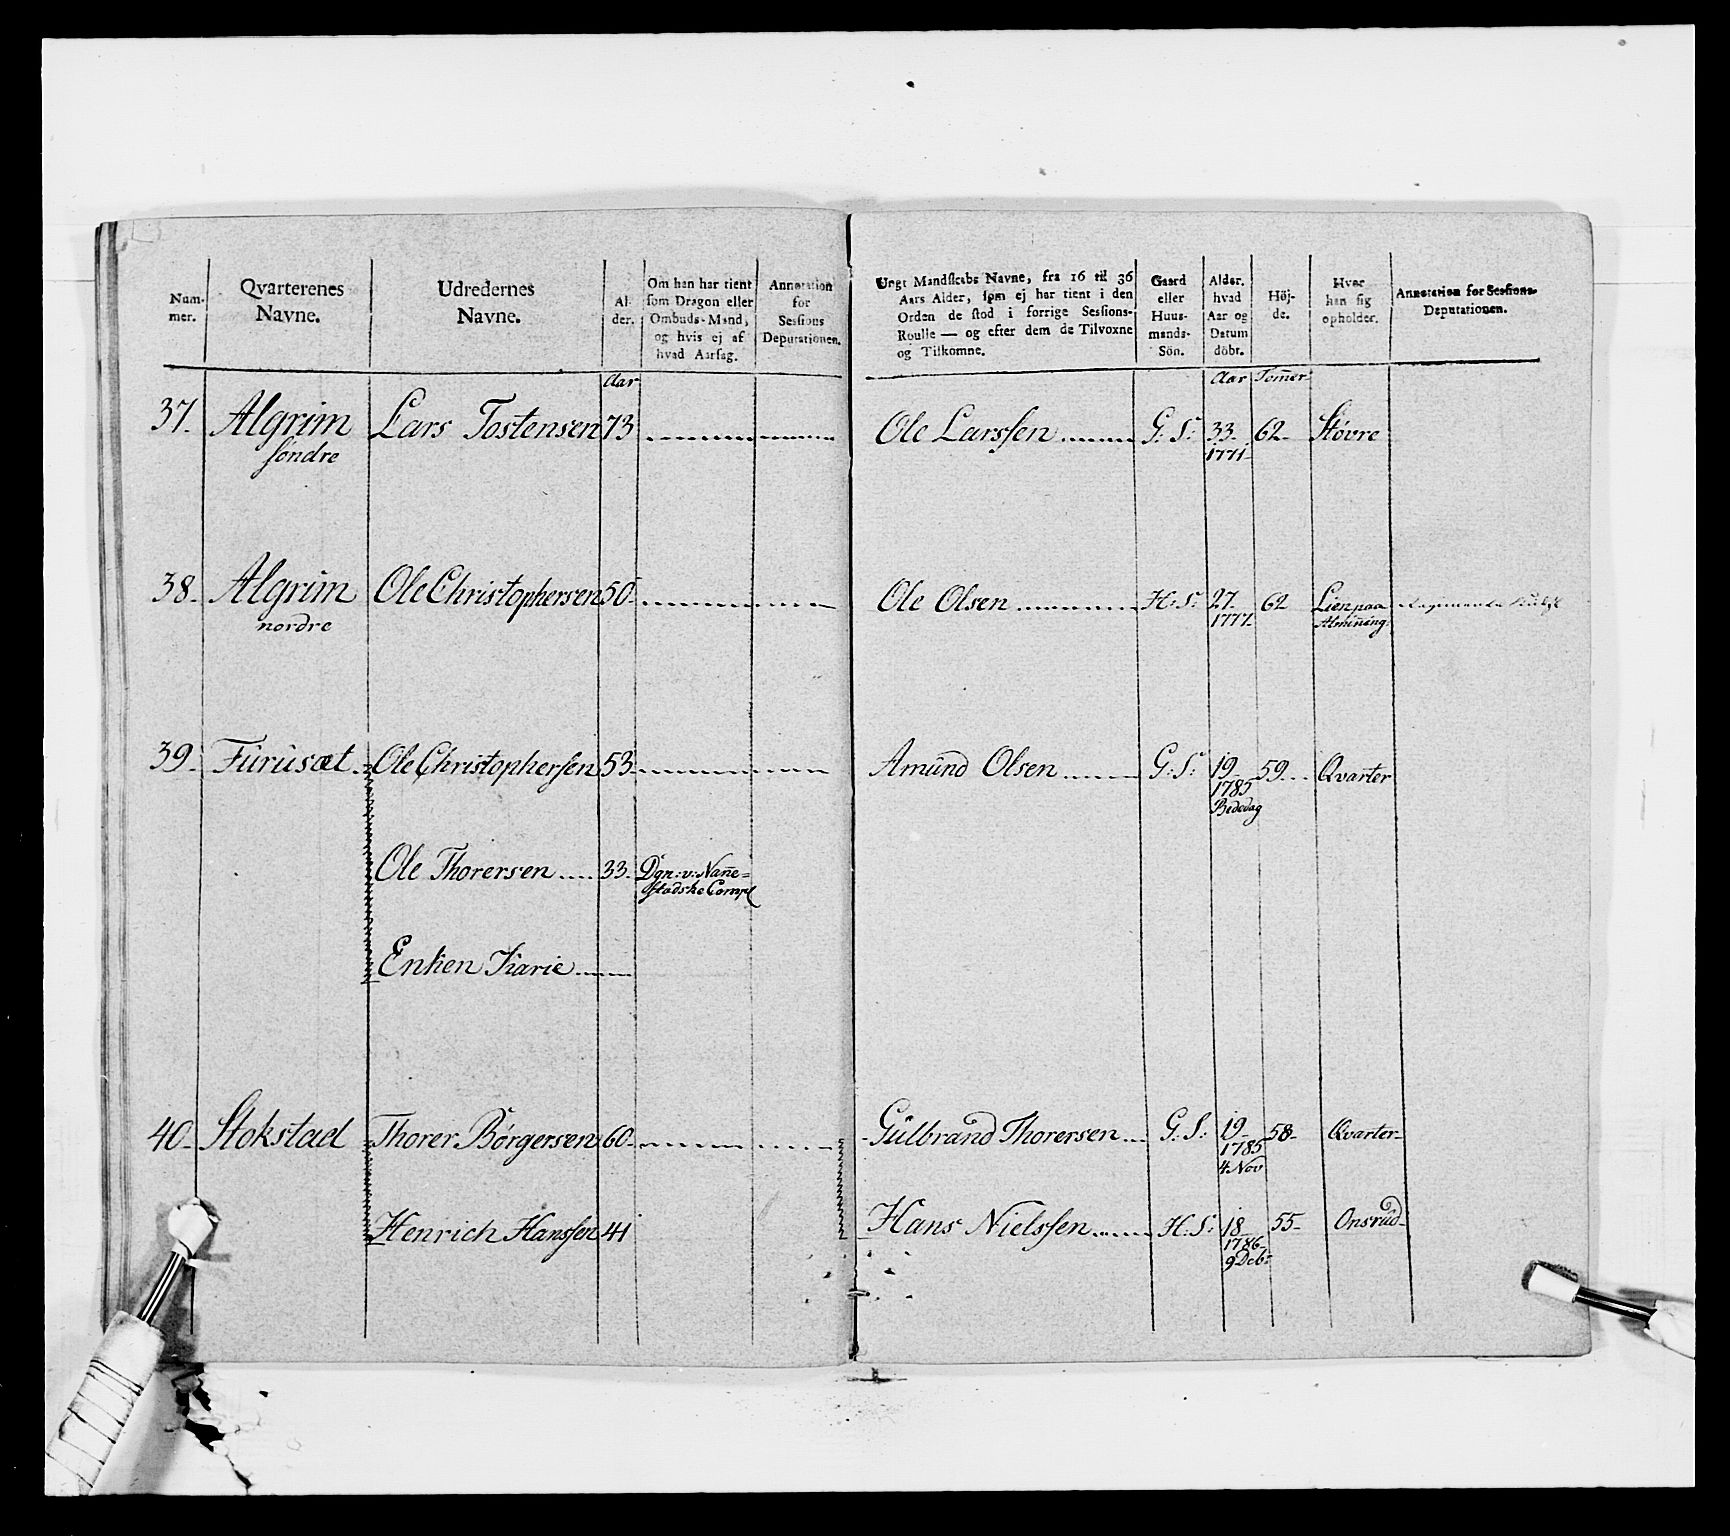 Num-
mer.
Qvarterenes
Navne.
Udredernes
Navne.
Al-
der.
Om han har tient
som Dragon eller
Ombuds-Mand,
og hvis ej af
hvad Aarsag.
Annotation
for
Sessions
Deputationen.
Ungt Mandskabs Navne, fra 16 til 36
Aars Alder, som ej har tient i den
Orden de stod i forrige Sessions-
Roulle — og efter dem de Tilvoxne
og Tilkomne.
Gaard
eller
Huus-
mands-
Sön.
Alder.
hvad
Aar og
Datum
döbt.
Höj-
de.
Hvor
han sig
opholder.
Annotation for Sessions-
Deputationen.
Aar
Aar Tom̄er
37. Algrim Lars Tostensen 73 Ole Larssen G: S: 33 62 Støvre
søndre 1771
38 Algrim Ole Christophersen 50 Ole Olsen H: S: 27 62 Lien paa
nordre 1777 Almining
39 Furusæt Ole Christophersen 53 Amund Olsen G: S: 19 59 Qvarter
1785
Bededag
Ole Thorersen 33 Dgn: v: Nan̄e=
stadske Comp
Enken Karie
40 Stokstad Thorer Børgersen 60 Gulbrand Thorersen G: S: 19 58 Qvarter
1785
4 Nov
Henrich Hanssen 41 Hans Nielssen H: S: 18 55 Onsrud
1786
9 Deb: